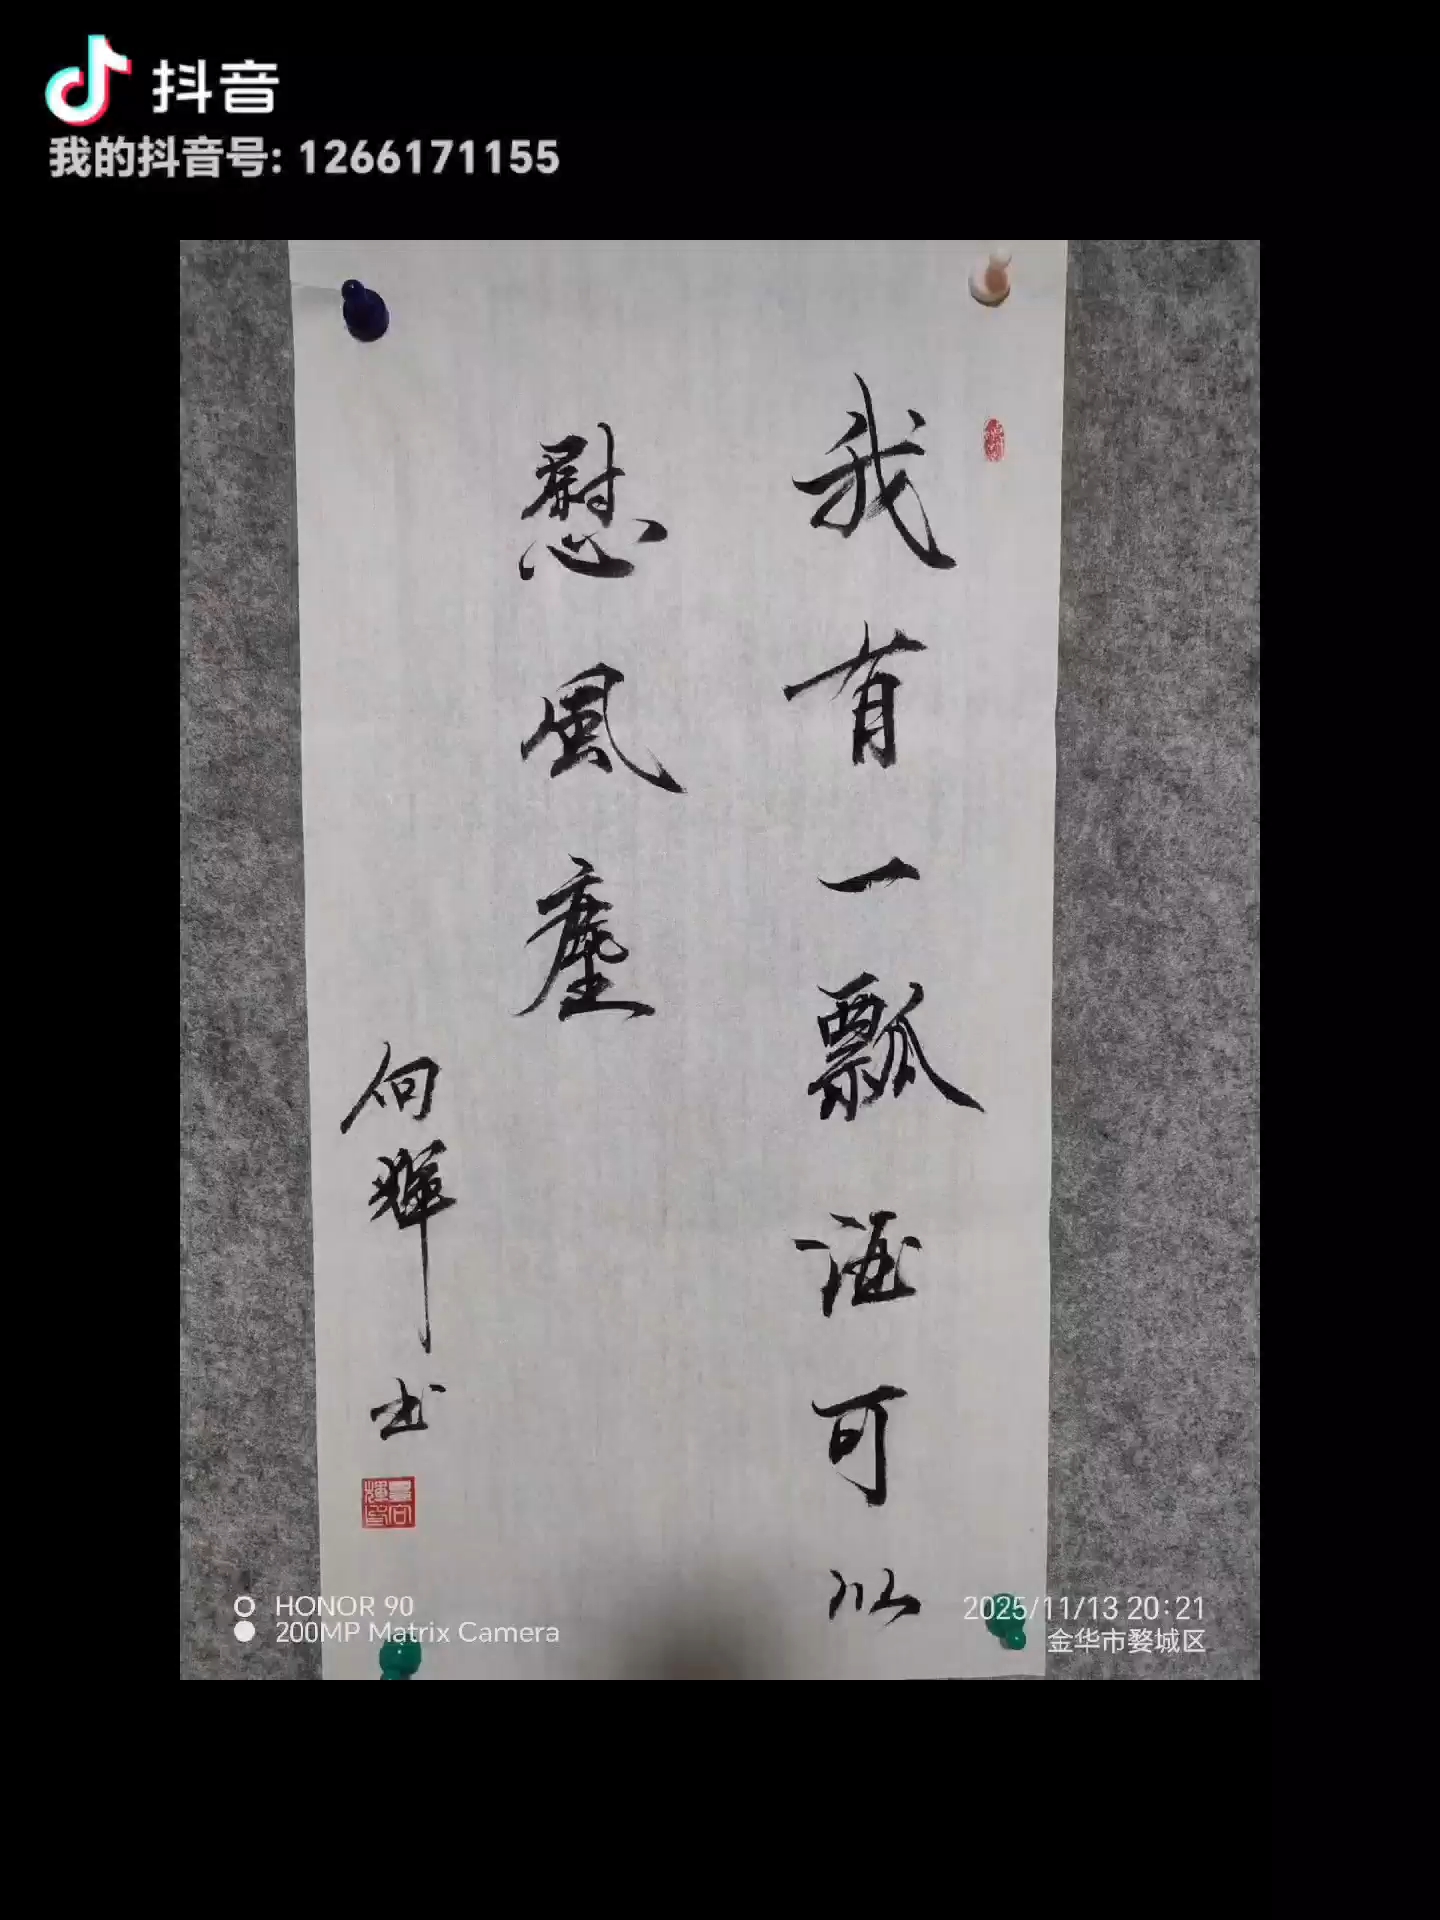 抖音
我的抖音号: 1266171155
我有一瓢酒可以
慰風塵
向輝书
HONOR 90
200MP Matrix Camera
2025/11/13 20:21
金华市婺城区